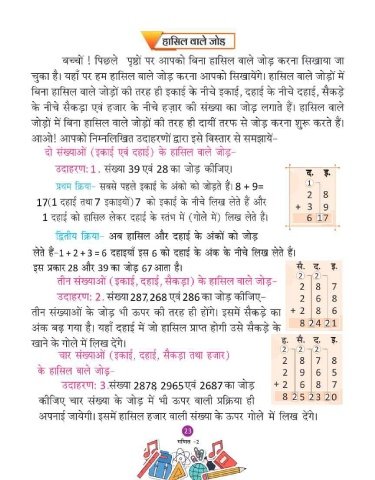 हासिल वाले जोड़
बच्चों ! पिछले पृष्ठों पर आपको बिना हासिल वाले जोड़ करना सिखाया जा
चुका है। यहाँ पर हम हासिल वाले जोड़ करना आपको सिखायेंगे। हासिल वाले जोड़ों में
बिना हासिल वाले जोड़ों की तरह ही इकाई के नीचे इकाई, दहाई के नीचे दहाई, सैकड़े
के नीचे सैकड़ा एवं हजार के नीचे हज़ार की संख्या का जोड़ लगाते हैं। हासिल वाले
जोड़ों में बिना हासिल वाले जोड़ों की तरह ही दायीं तरफ से जोड़ करना शुरू करते हैं।
आओ! आपको निम्नलिखित उदाहरणों द्वारा इसे विस्तार से समझायें-
दो संख्याओं (इकाई एवं दहाई) के हासिल वाले जोड़-
उदाहरण: 1. संख्या 39 एवं 28 का जोड़ कीजिए।
प्रथम क्रिया- सबसे पहले इकाई के अंको को जोड़ते हैं। 8 + 9=
17(1 दहाई तथा 7 इकाइयों)7 को इकाई के नीचे लिख लेते हैं और
1 दहाई को हासिल लेकर दहाई के स्तंभ में (गोले में) लिख लेते है।
द. इ.
1
2 8
+ 3 9
6 17
द्वितीय क्रिया- अब हासिल और दहाई के अंकों को जोड़
लेते हैं-1 + 2 + 3 = 6 दहाइयाँ इस 6 को दहाई के अंक के नीचे लिख लेते हैं।
इस प्रकार 28 और 39 का जोड़ 67 आता है।
तीन संख्याओं (इकाई, दहाई, सैकड़ा) के हासिल वाले जोड़-
उदाहरण: 2. संख्या 287,268 एवं 286 का जोड़ कीजिए-
तीन संख्याओं के जोड़ भी ऊपर की तरह ही होंगे। इसमें सैकड़े का
अंक बढ़ गया है। यहाँ दहाई में जो हासिल प्राप्त होगी उसे सैकड़े के
खाने के गोले में लिख देंगे।
सै. द. इ.
2 2
2 8 7
2 6 8
+ 2 8 6
8 24 21
चार संख्याओं (इकाई, दहाई, सैकड़ा तथा हजार)
के हासिल वाले जोड़-
उदाहरण: 3.संख्या 2878 2965 एवं 2687 का जोड़
कीजिए चार संख्या के जोड़ में भी ऊपर वाली प्रक्रिया ही
अपनाई जायेगी। इसमें हासिल हजार वाली संख्या के ऊपर गोले में लिख देंगे।
ह. सै. द. इ.
2 2 2
2 8 7 8
2 9 6 5
+ 2 6 8 7
8 25 23 20
23
गणित -2